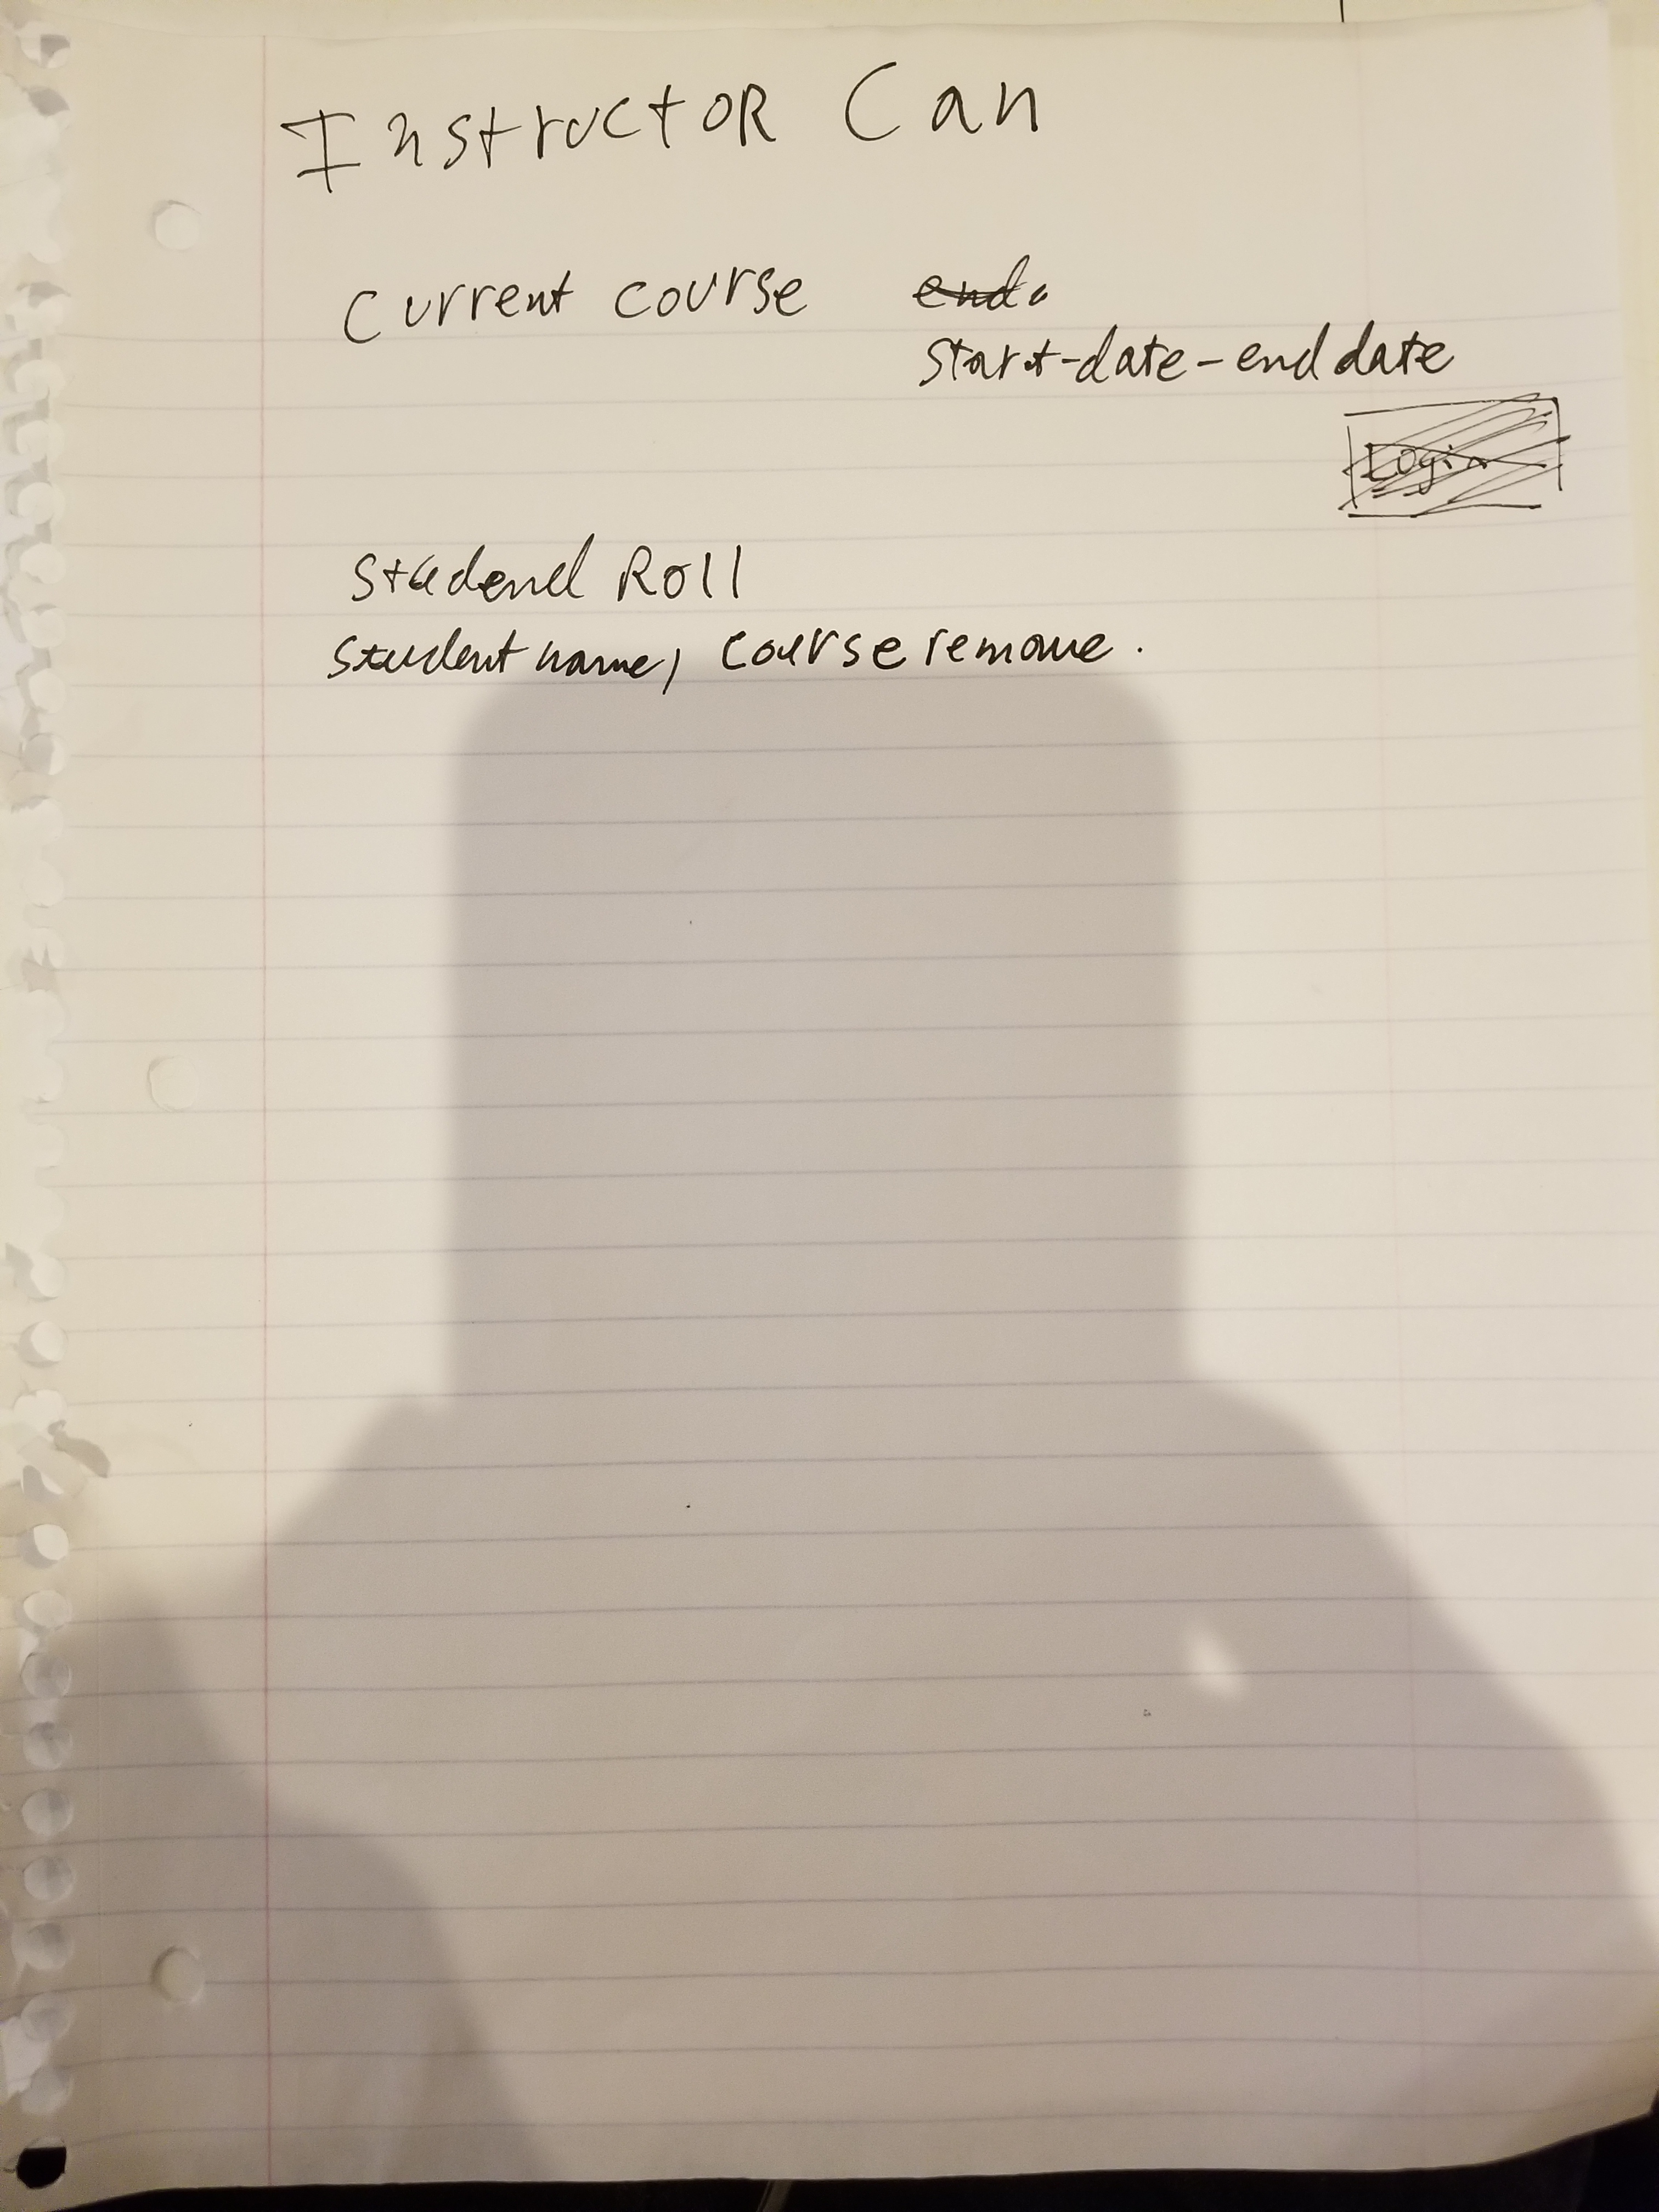 Instructor Can
Current course end.
start-date-end date
Login
Studend Roll
Student name, course remove.